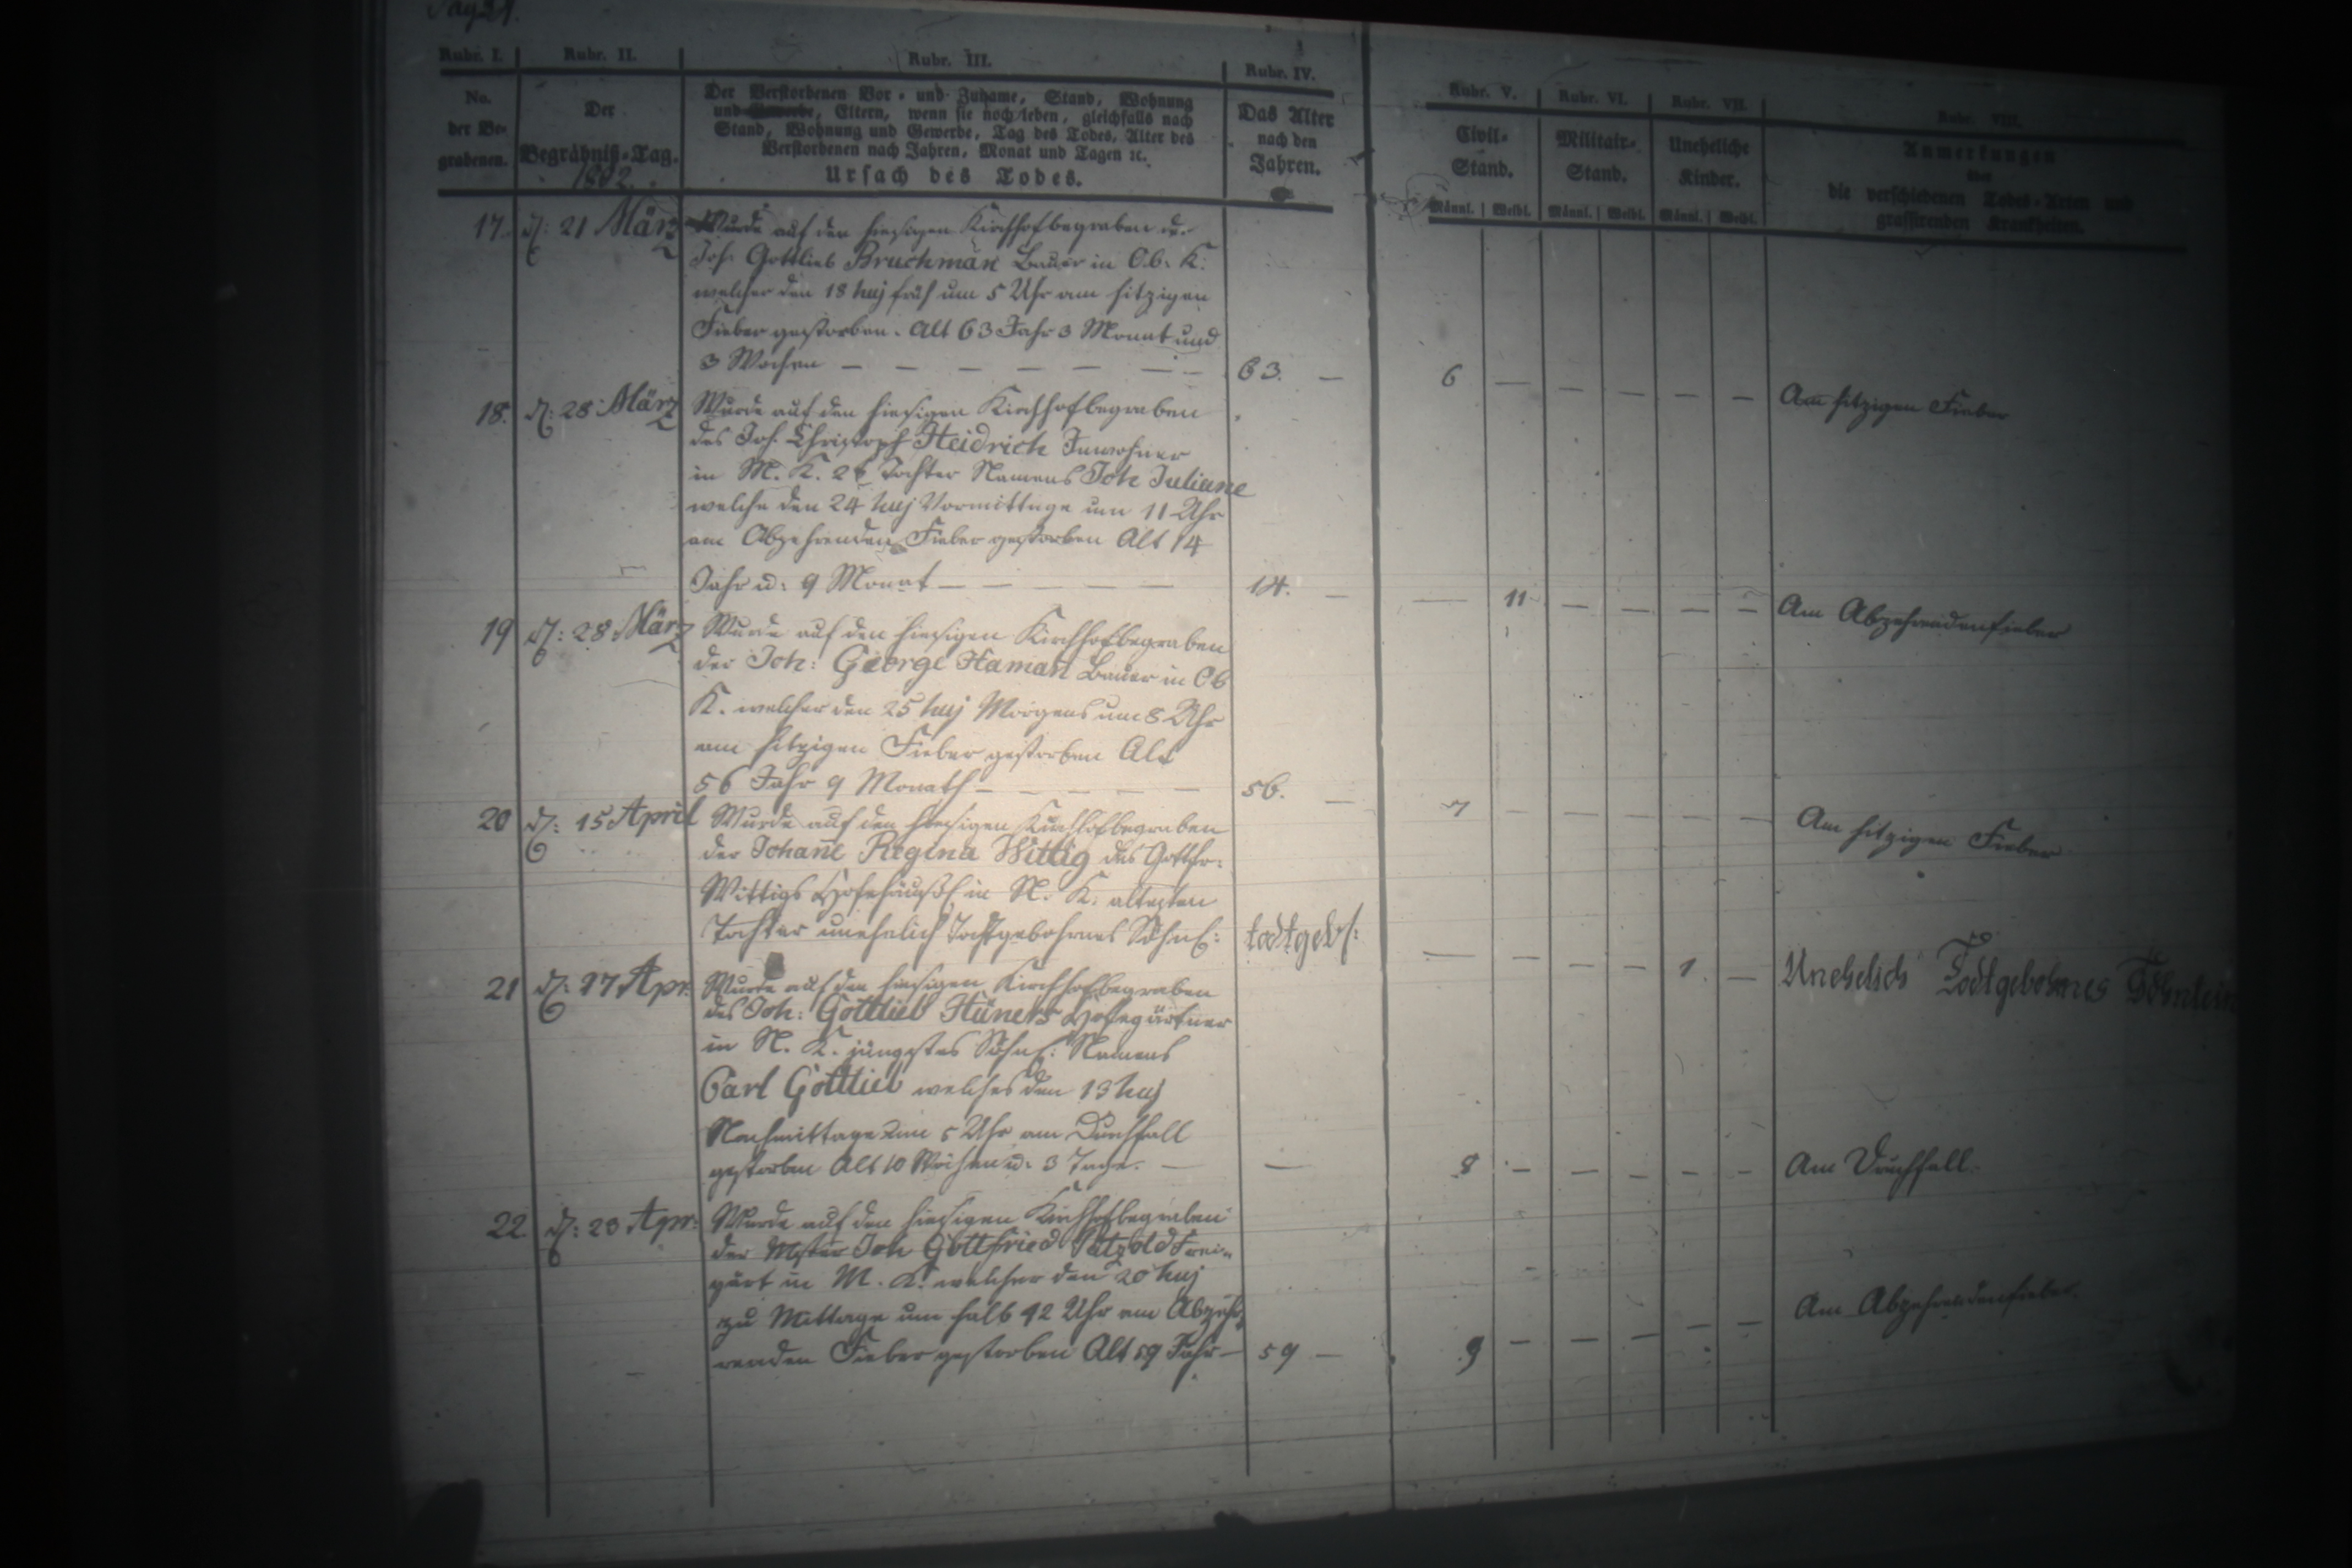 Pag 21.
Rubr. I. Rubr. II. Rubr. III. Rubr. IV. Rubr. V. Rubr. VI. Rubr. VII. Rubr. VIII.
No. der Begrabenen.
Der Begräbniß-Tag.
1802.
Der Verstorbenen Vor- und Zuname, Stand, Wohnung
und Gewerbe, Eltern, wenn sie noch leben, gleichfalls nach
Stand, Wohnung und Gewerbe, Tag des Todes, Alter des
Verstorbenen nach Jahren, Monat und Tagen ꝛc.
Ursach des Todes.
Das Alter
nach den
Jahren.
Civil-
Stand.
Männl. Weibl.
Militair-
Stand.
Männl. Weibl.
Uneheliche
Kinder.
Männl. Weibl.
Anmerkungen
über
die verschiedenen Todes-Arten und
grassirenden Krankheiten.
17. d: 21 März Wurde auf den hiesigen Kirchhof begraben der
Joh: Gottlieb Bruchman̄ Bauer in Ob. K:
welcher den 18 huj früh um 5 Uhr am hitzigen
Fieber gestorben. Alt 63 Jahr 3 Monat und
3 Wochen — 63. — 6 — — — — — Am hitzigen Fieber
18. d: 28 März Wurde auf den hiesigen Kirchhof begraben
des Joh. Christoph Heidrich Inwohner
in M. K. 2t Tochter Namens Joh Juliane
welche den 24 huj Vormittage um 11 Uhr
am Abzehrenden Fieber gestorben Alt 14
Jahr u: 9 Monat — 14. — — 11 — — — — Am Abzehrendenfieber
19 d: 28 März Wurde auf den hiesigen Kirchhof begraben
der Joh: George Haman̄ Bauer in Ob
K. welcher den 25 huj Morgens um 8 Uhr
am hitzigen Fieber gestorben Alt
56 Jahr 9 Monath — 56. — 7 — — — — — Am hitzigen Fieber
20 d: 15 April Wurde auf den hiesigen Kirchhof begraben
der Johan̄e Regina Wittig des Gottfr:
Wittigs Hofehäusl in N. K. altesten
Tochter unehelich Todtgebohrnes Söhnl: todtgeb: — — — — 1. — Unehelich Todtgebohrnes Söhnlein
21 d: 17 Apr: Wurde auf den hiesigen Kirchhof begraben
des Joh: Gottlieb Hüners Hofegärtner
in N. K. jüngstes Söhnl: Namens
Carl Gottlieb welches den 13 huj
Nachmittage um 5 Uhr am Durchfall
gestorben Alt 10 Wochen u: 3 Tage. — — 8 — — — — — Am Durchfall.
22 d: 23 Apr: Wurde auf den hiesigen Kirchhof begraben
der Mstr Joh Gottfried Pätzold Frei-
gärt in M. K. welcher den 20 huj
zu Mittage um halb 12 Uhr am Abzeh-
renden Fieber gestorben Alt 59 Jahr — 59 — 9 — — — — — Am Abzehrendenfieber.